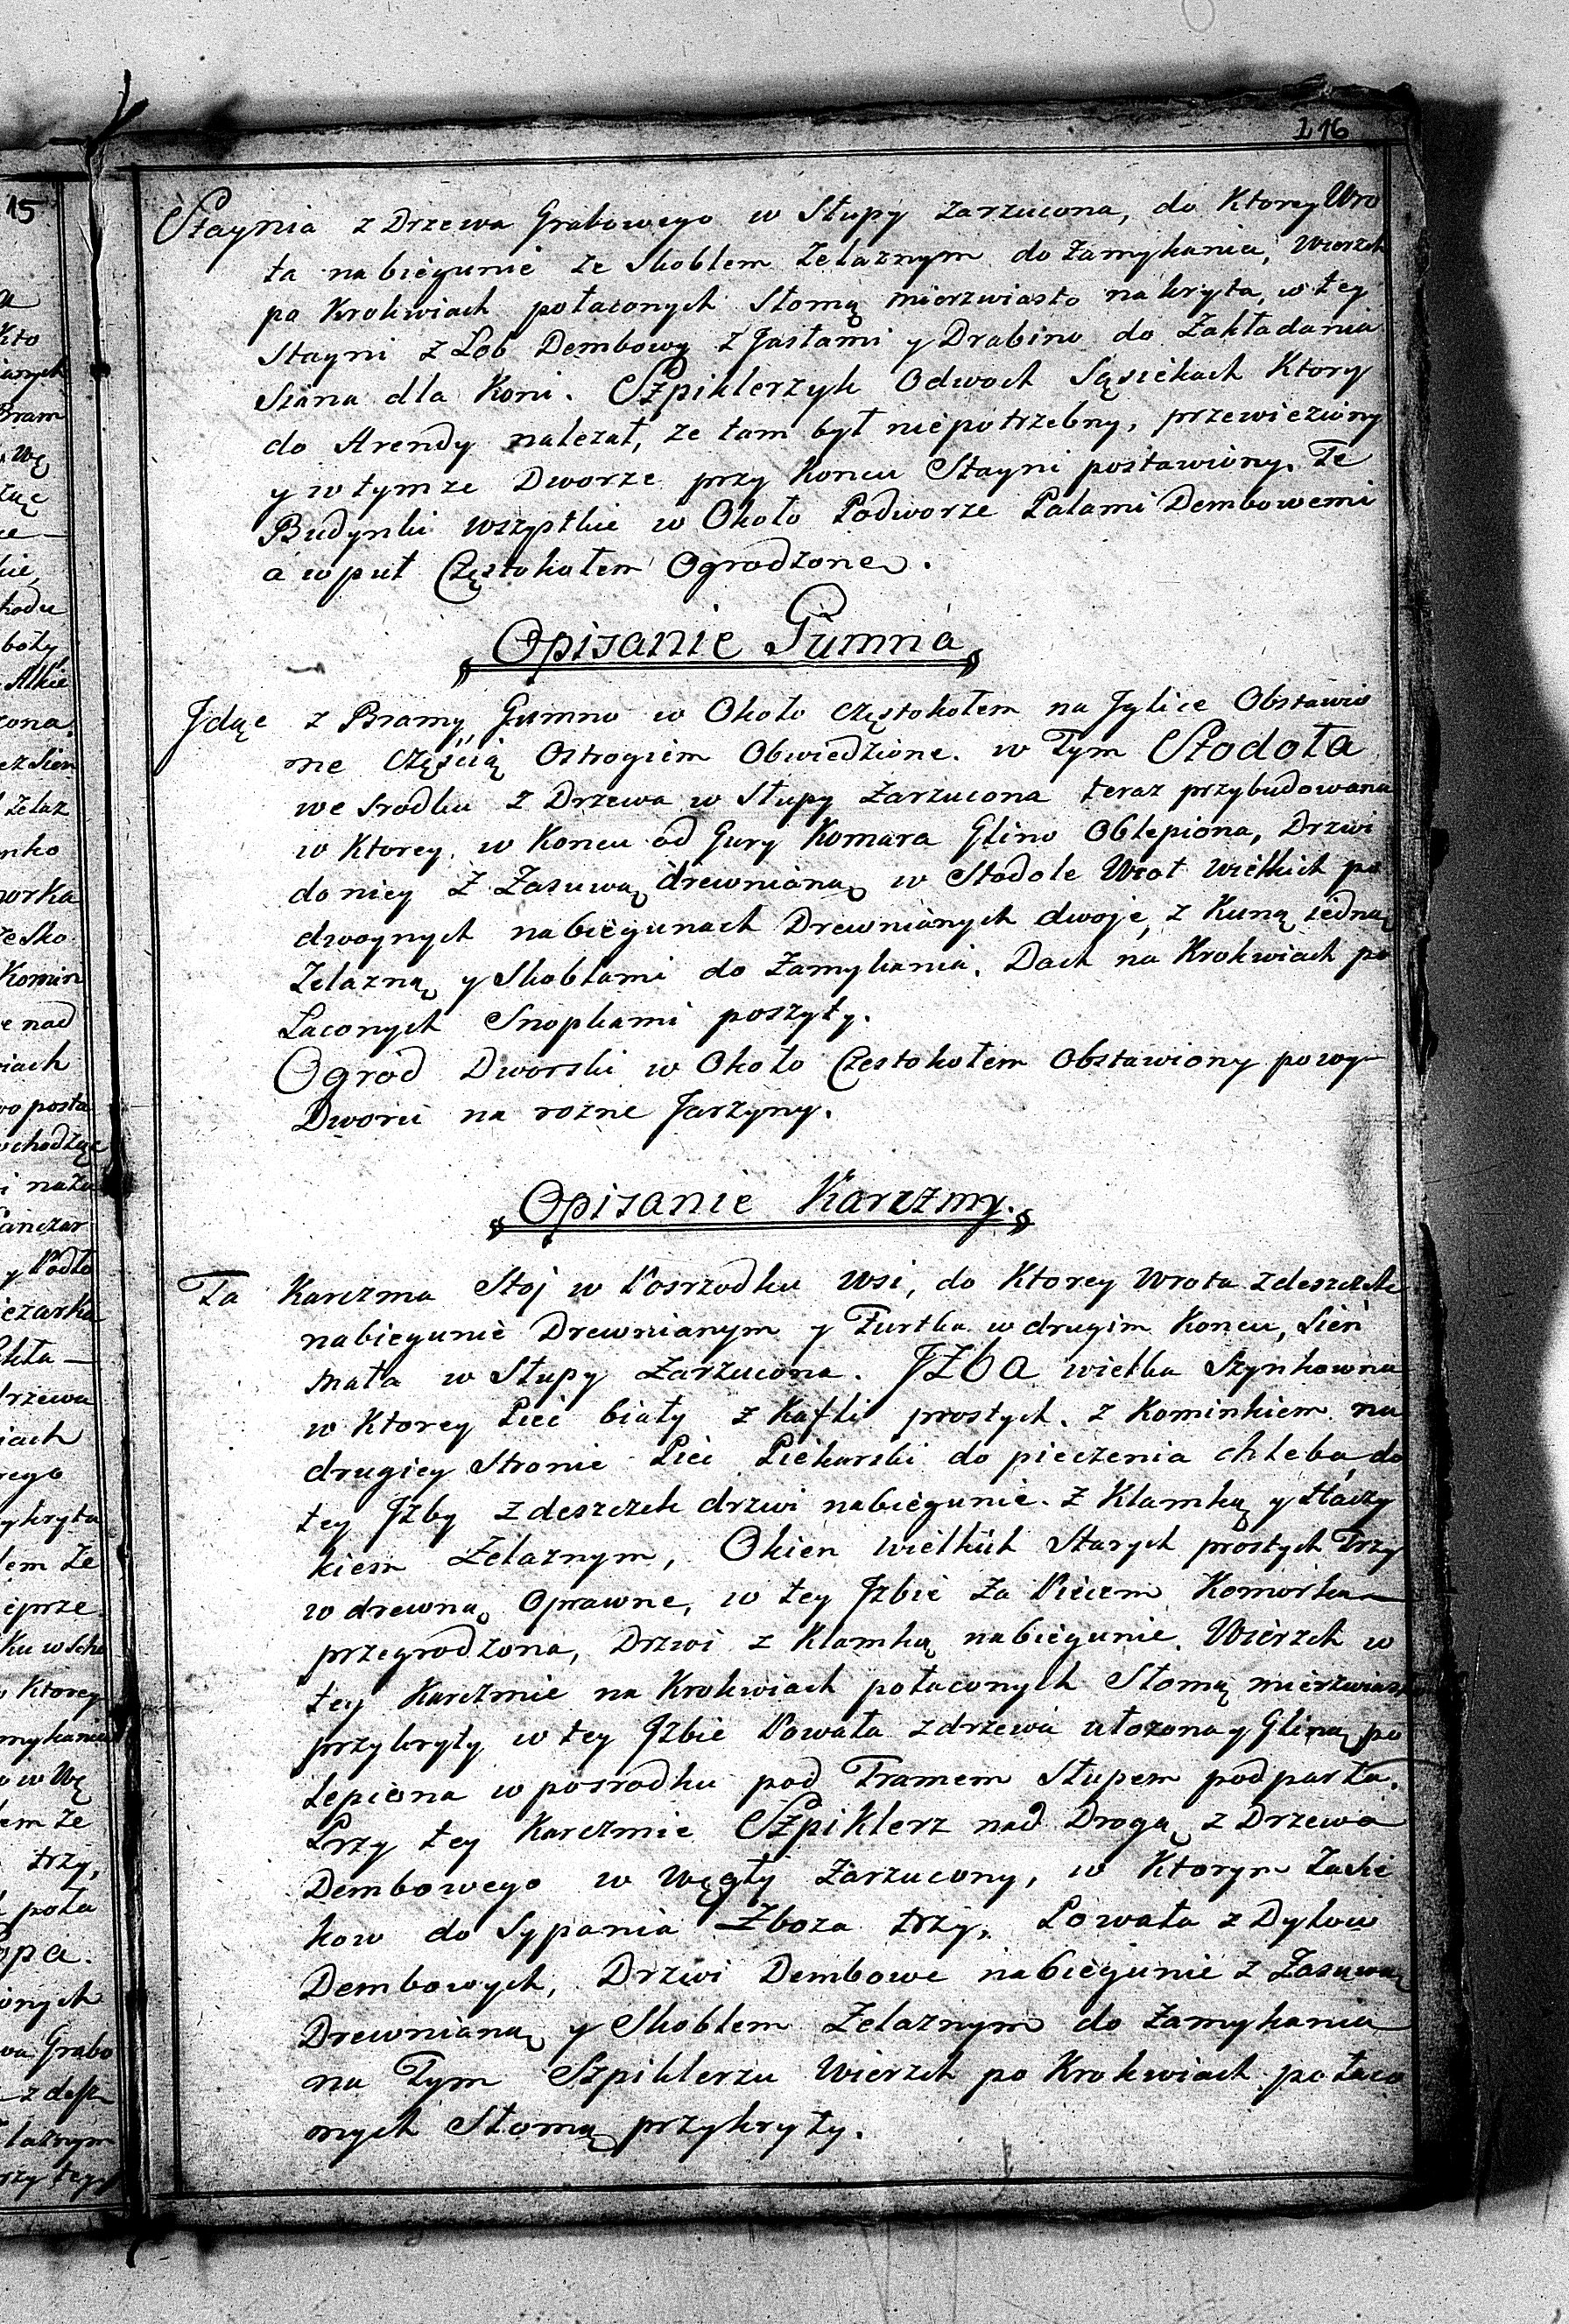 116
Staynia z Drzewa Grabowego w Słupy zarzucona, do Ktorey Wro
ta na biegunie ze Skoblem Żelaznym do zamykania, Wierzch
po Krokwiach połaconych Słomą mierzwiasto nakryta, w tey
Stayni z Łob Dembowy z Jasłami y Drabino do Zakładania
Siana dla Koni. Szpiklerzyk Odwoch Sąsiekach Ktory
do Arendy nalezał, ze tam był niepotrzebny, przewieziony
y w tymze Dworze przy Koncu Stayni postawiony. Te
Budynki wszystkie w Około Podworze Palami Dembowemi
a w puł Częstokołem Ogrodzone.
Opisanie Gumna
Jdąc z Bramy Gumno w Około częstokołem na Jglice Obstawio
ne Częścią Ostrogiem Obwiedzione. w Tym Stodoła
we srodku z Drzewa w Słupy Zarzucona teraz przybudowana
w Ktorey w Koncu od Gury Komara Glino Oblepiona, Drzwi
do niey z Zasuwą drewnianą w Stodole Wrot wielkich po
dwoynych na biegunach Drewnianych dwoje, z Kuną iedną
Żelazną y Skoblami do Zamykania. Dach na Krokwiach po
Łaconych Snopkami poszyty.
Ogrod Dworski w Około Częstokołem Obstawiony powy
Dworu na rozne Jarzyny.
Opisanie Karczmy.
Ta Karczma Stoj w Posrzodku wsi, do Ktorey Wrota z deszczek
na biegunie Drewnianym y Furtka w drugim Koncu, Sień
mała w Słupy Zarzucona. JZba wielka Szynkowna
w Ktorey Piec biały z Kafli prostych. z Kominkiem na
drugiey Stronie Piec Piekarski do pieczenia chleba, do
tey Jzby z deszczek drzwi na biegunie. z Klamką y Haczy
kiem Żelaznym, Okien wielkich Starych prostych Trzy
w drewną Oprawne, w tey Jzbie za Piecem Komorka
przegrodzona, Drzwi z Klamką na biegunie. Wierzch w
tey Karczmie na Krokwiach połaconych Słomą mierzwiasto
przykryty w tey Jzbie Powała z drzewa ułozona y Gliną po
lepiona w posrodku pod Tramem Słupem podparta.
Przy tey Karczmie Szpiklerz nad Drogą z Drzewa
Dembowego w Węgły Zarzucony, w Ktorym Zasie
kow do Sypania Zboza trzy, Powała z Dylow
Dembowych, Drzwi Dembowe na biegunie z Zasuwą
Drewnianą y Skoblem Żelaznym do Zamykania
na Tym Szpiklerzu Wierzch po Krokwiach połaco
nych Słomą przykryty.